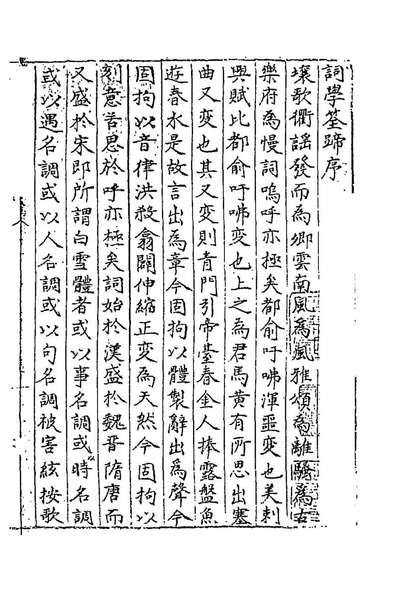 詞學筌蹄序
壤歌衢謡發而為卿雲南風為風雅頌為離騷為古
樂府為慢詞嗚呼亦極矣都俞吁咈渾噩變也美刺
興賦比都俞吁咈變也上之為君馬黄有所思出塞
曲又變也其又變則青門引帝臺春金人捧露盤魚
遊春水是故言出為章今固拘以體製辭出為聲今
固拘以音律洪殺翕闢伸縮正變為天然今固拘以
刻意苦思於呼亦極矣詞始於漢盛於魏晋隋唐而
又盛於宋即所謂白雪體者或以事名調或以時名調
或以遇名調或以人名調或以句名調被害絃按歌